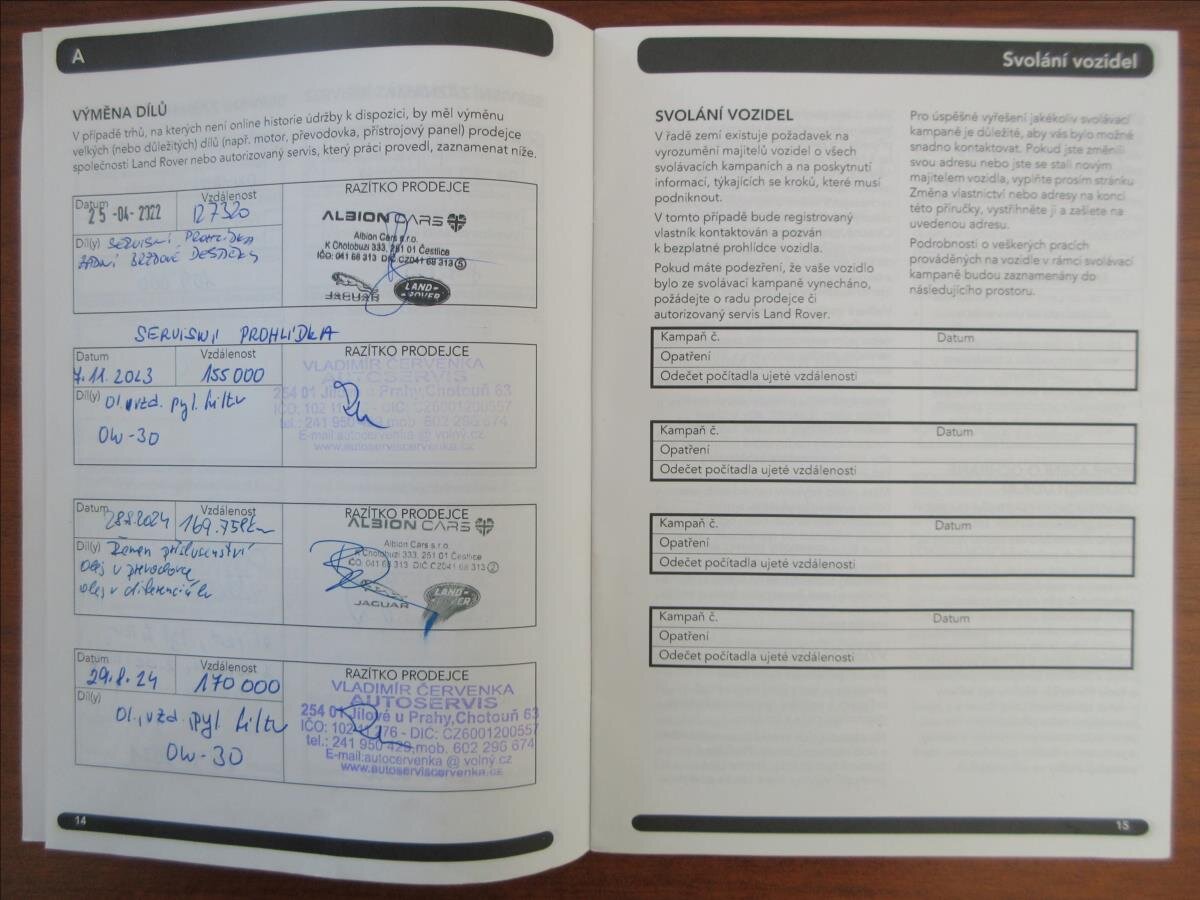 A
VÝMĚNA DÍLŮ
V případě trhů, na kterých není online historie údržby k dispozici, by měl výměnu
velkých (nebo důležitých) dílů (např. motor, převodovka, přístrojový panel) prodejce
společnosti Land Rover nebo autorizovaný servis, který práci provedl, zaznamenat níže.
Datum Vzdálenost RAZÍTKO PRODEJCE
25 -04- 2022 127320
Díl(y) SERVISNÍ PROHLÍDKA
ZADNÍ BRZDOVÉ DESTIČKY
ALBION CARS
Albion Cars s.r.o.
K Chotobuzi 333, 251 01 Čestlice
IČO: 041 68 313 DIČ.CZ041 68 313 5
JAGUAR LAND-ROVER
SERVISNÍ PROHLÍDKA
Datum Vzdálenost RAZÍTKO PRODEJCE
7.11.2023 155000
Díl(y) Ol. vzd. pyl. filtr
0W-30
VLADIMÍR ČERVENKA
AUTOSERVIS
254 01 Jílové u Prahy,Chotouň 63
IČO: 102 11 - DIČ: CZ6001200557
tel.: 241 950 429,mob. 602 296 674
E-mail:autocervenka @ volný.cz
www.autoserviscervenka.cz
Datum Vzdálenost RAZÍTKO PRODEJCE
28.8.2024 169.758km
Díl(y) Řemen příslušenství
olej v převodovce
olej v diferenciálu
ALBION CARS
Albion Cars s.r.o.
K Chotobuzi 333, 251 01 Čestlice
IČO: 041 68 313 DIČ.CZ041 68 313 2
JAGUAR LAND-ROVER
Datum Vzdálenost RAZÍTKO PRODEJCE
29.8.24 170 000
Díl(y)
Ol., vzd. pyl. filtr
0W-30
VLADIMÍR ČERVENKA
AUTOSERVIS
254 01 Jílové u Prahy,Chotouň 63
IČO: 102 11 276 - DIČ: CZ6001200557
tel.: 241 950 429,mob. 602 296 674
E-mail:autocervenka @ volný.cz
www.autoserviscervenka.cz
14
Svolání vozidel
SVOLÁNÍ VOZIDEL
V řadě zemí existuje požadavek na
vyrozumění majitelů vozidel o všech
svolávacích kampaních a na poskytnutí
informací, týkajících se kroků, které musí
podniknout.
V tomto případě bude registrovaný
vlastník kontaktován a pozván
k bezplatné prohlídce vozidla.
Pokud máte podezření, že vaše vozidlo
bylo ze svolávací kampaně vynecháno,
požádejte o radu prodejce či
autorizovaný servis Land Rover.
Pro úspěšné vyřešení jakékoliv svolávací
kampaně je důležité, aby vás bylo možné
snadno kontaktovat. Pokud jste změnili
svou adresu nebo jste se stali novým
majitelem vozidla, vyplňte prosím stránku
Změna vlastnictví nebo adresy na konci
této příručky, vystřihněte ji a zašlete na
uvedenou adresu.
Podrobnosti o veškerých pracích
prováděných na vozidle v rámci svolávací
kampaně budou zaznamenány do
následujícího prostoru.
Kampaň č. Datum
Opatření
Odečet počítadla ujeté vzdálenosti
Kampaň č. Datum
Opatření
Odečet počítadla ujeté vzdálenosti
Kampaň č. Datum
Opatření
Odečet počítadla ujeté vzdálenosti
Kampaň č. Datum
Opatření
Odečet počítadla ujeté vzdálenosti
15